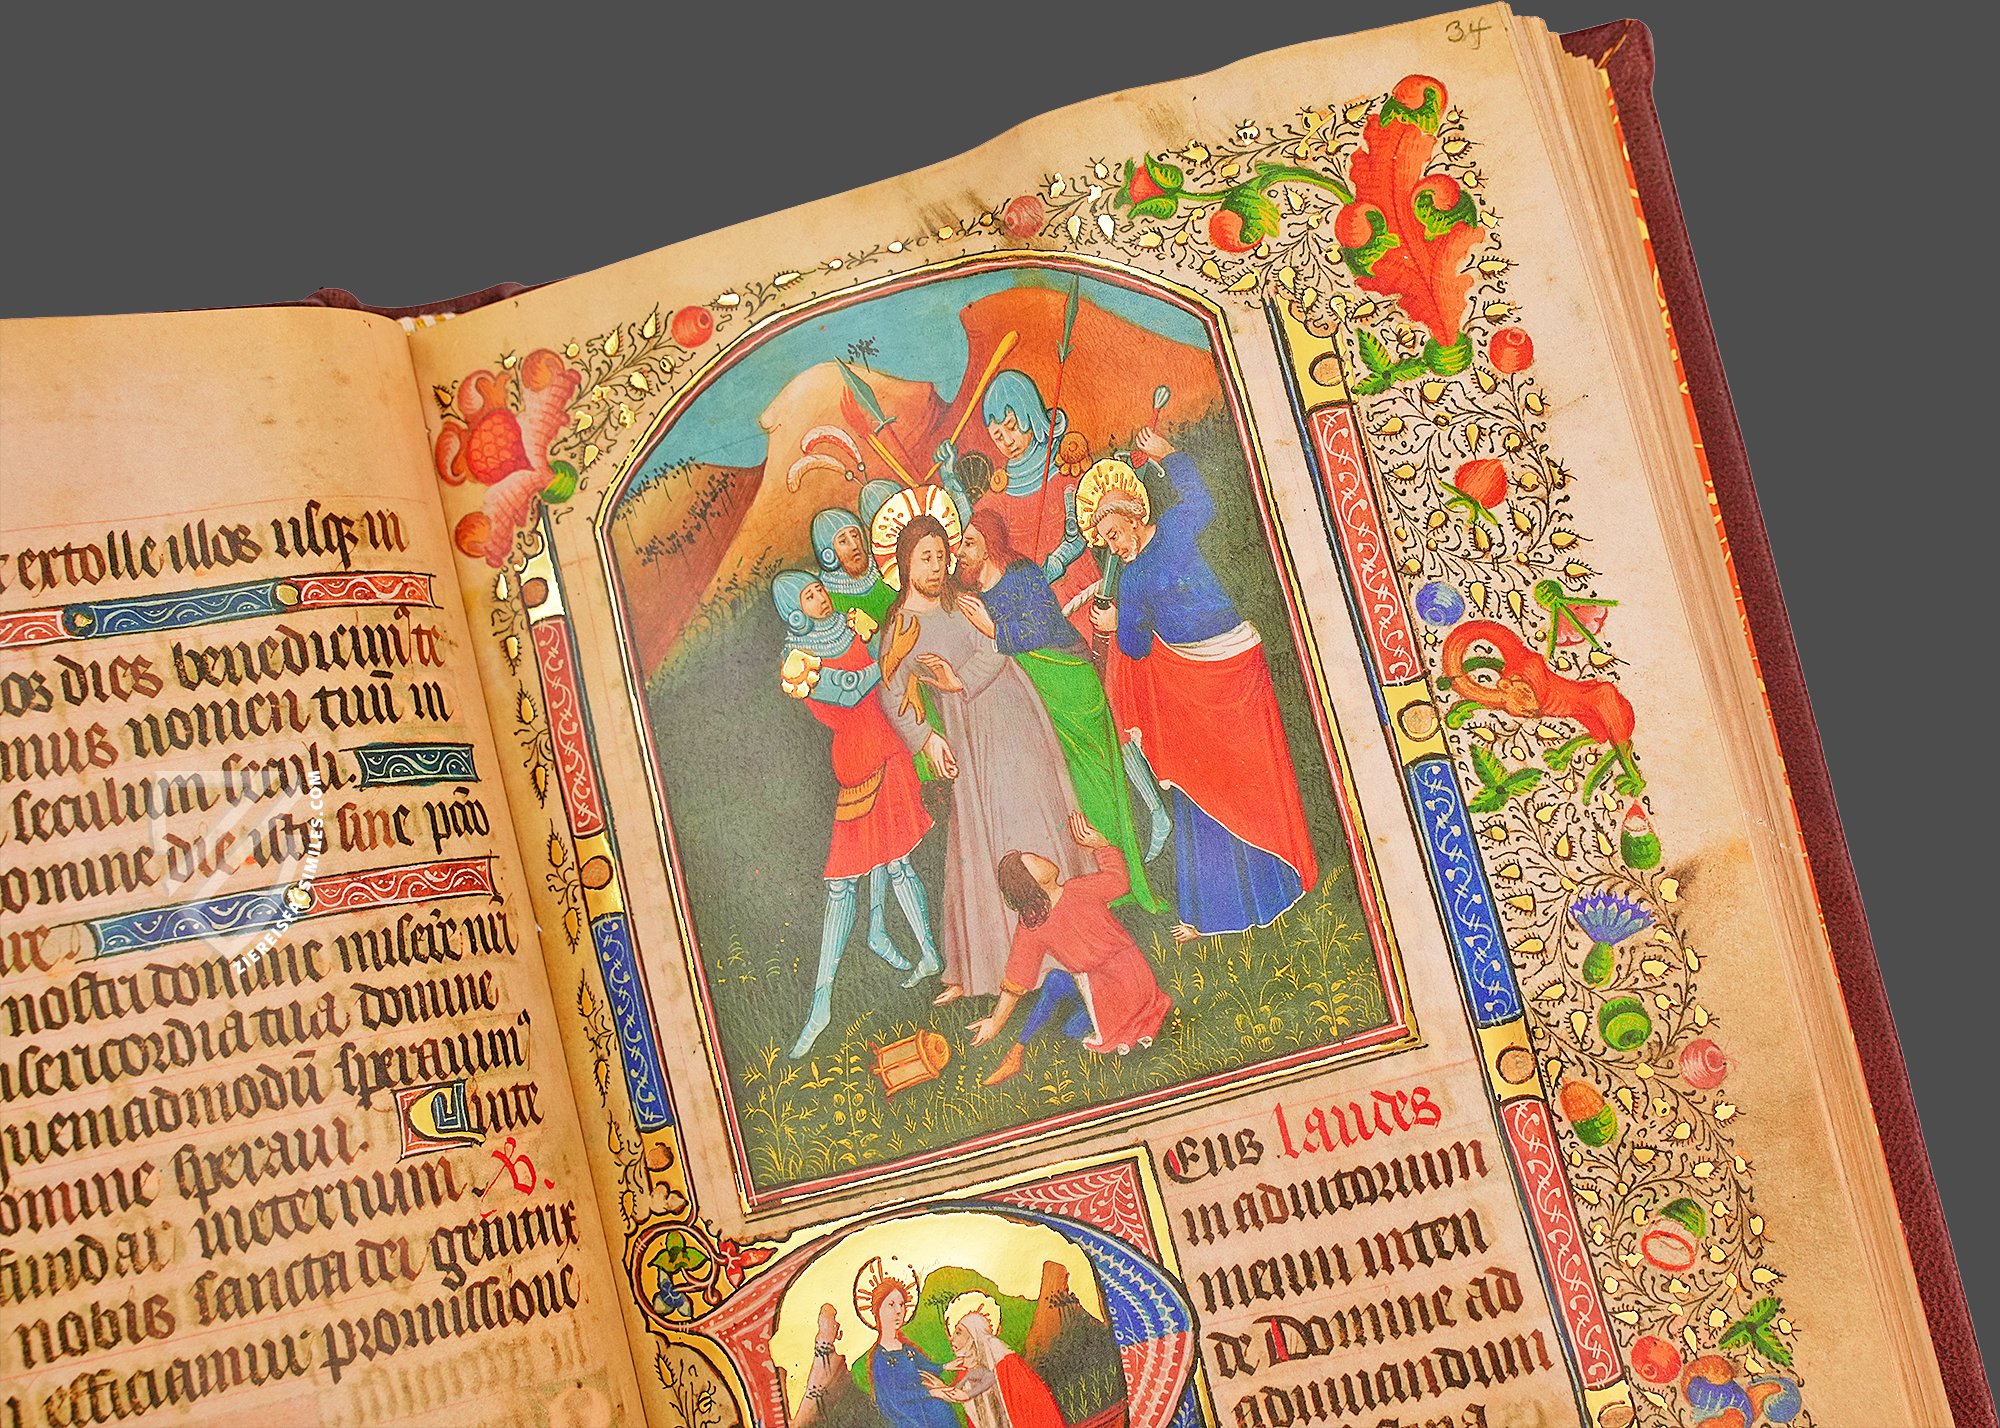 extolle illos usq in
os dies benedicim te
mus nomen tuū in
seculum seculi.
omine die isto sine pcō
nostri domine misere nri
misericordia tua domine
quemadmodū speravim
omine speravi. In te
fundar in eternum. V.
nobis sancta dei genitrix
efficiamur promissione
34
laudes
Eus
in adiutorium
meum inten
de Domine ad
adiuvandum
ZIEREISFACSIMILES.COM